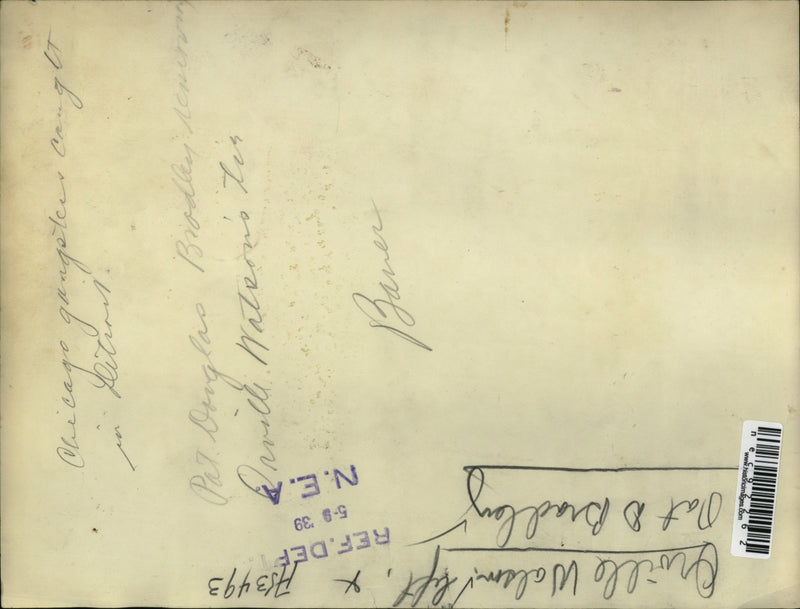 Chicago gangsters caught
in Detroit.
Pat. Douglas Bradley removing
Orville Watson's tie
Bauer
Orville Watson, left, &
Pat D Bradley
REF. DEPT.
5-9 '39
N.E.A.
A53493
www.historicimages.com
nec96262